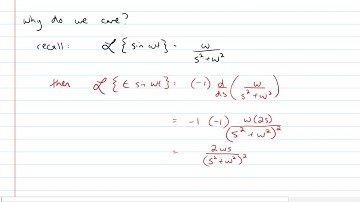 why do we care?
recall: ℒ{sin wt} = w / (s² + w²)
then ℒ{t sin wt} = (-1) d/ds (w / (s² + w²))
= -1 (-1) w(2s) / (s² + w²)²
= 2ws / (s² + w²)²